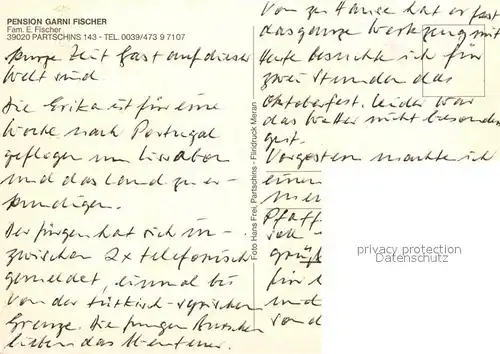 PENSION GARNI FISCHER
Fam. E. Fischer
39020 PARTSCHINS 143 - TEL. 0039/473 9 7107
kurze Zeit Gast auf dieser
Welt sind.
Die Erika ist für eine
Woche nach Portugal
geflogen um Lissabon
und das Land zu er-
kundigen.
Der Jürgen hat sich in-
zwischen 2x telefonisch
gemeldet, einmal bis
von der türkisch-syrischen
Grenze. Die jungen Burschen
lieben das Abenteuer.
Foto Hans Frei, Partschins - Flindruck Meran
Von zu Hause hat er fast
das ganze Werkzeug mit
Heute besuchte ich für
zwei Stunden das
Oktoberfest. Leider war
das Wetter nicht besonders
gut.
Vorgestern machte ich
einen
Pfaff
ich
für
und
von d
privacy protection
Datenschutz